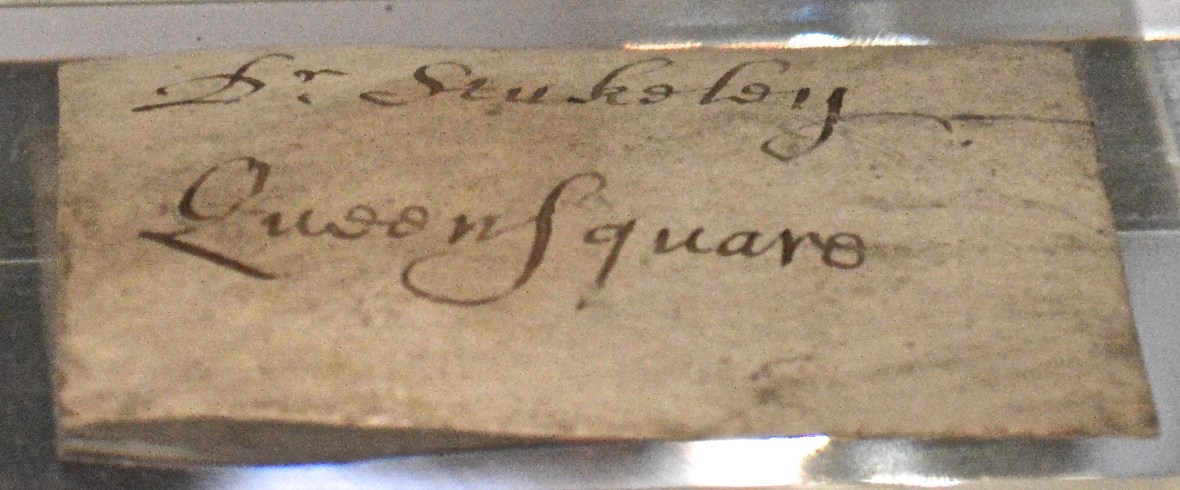 Dr Stukeley
Queen Square